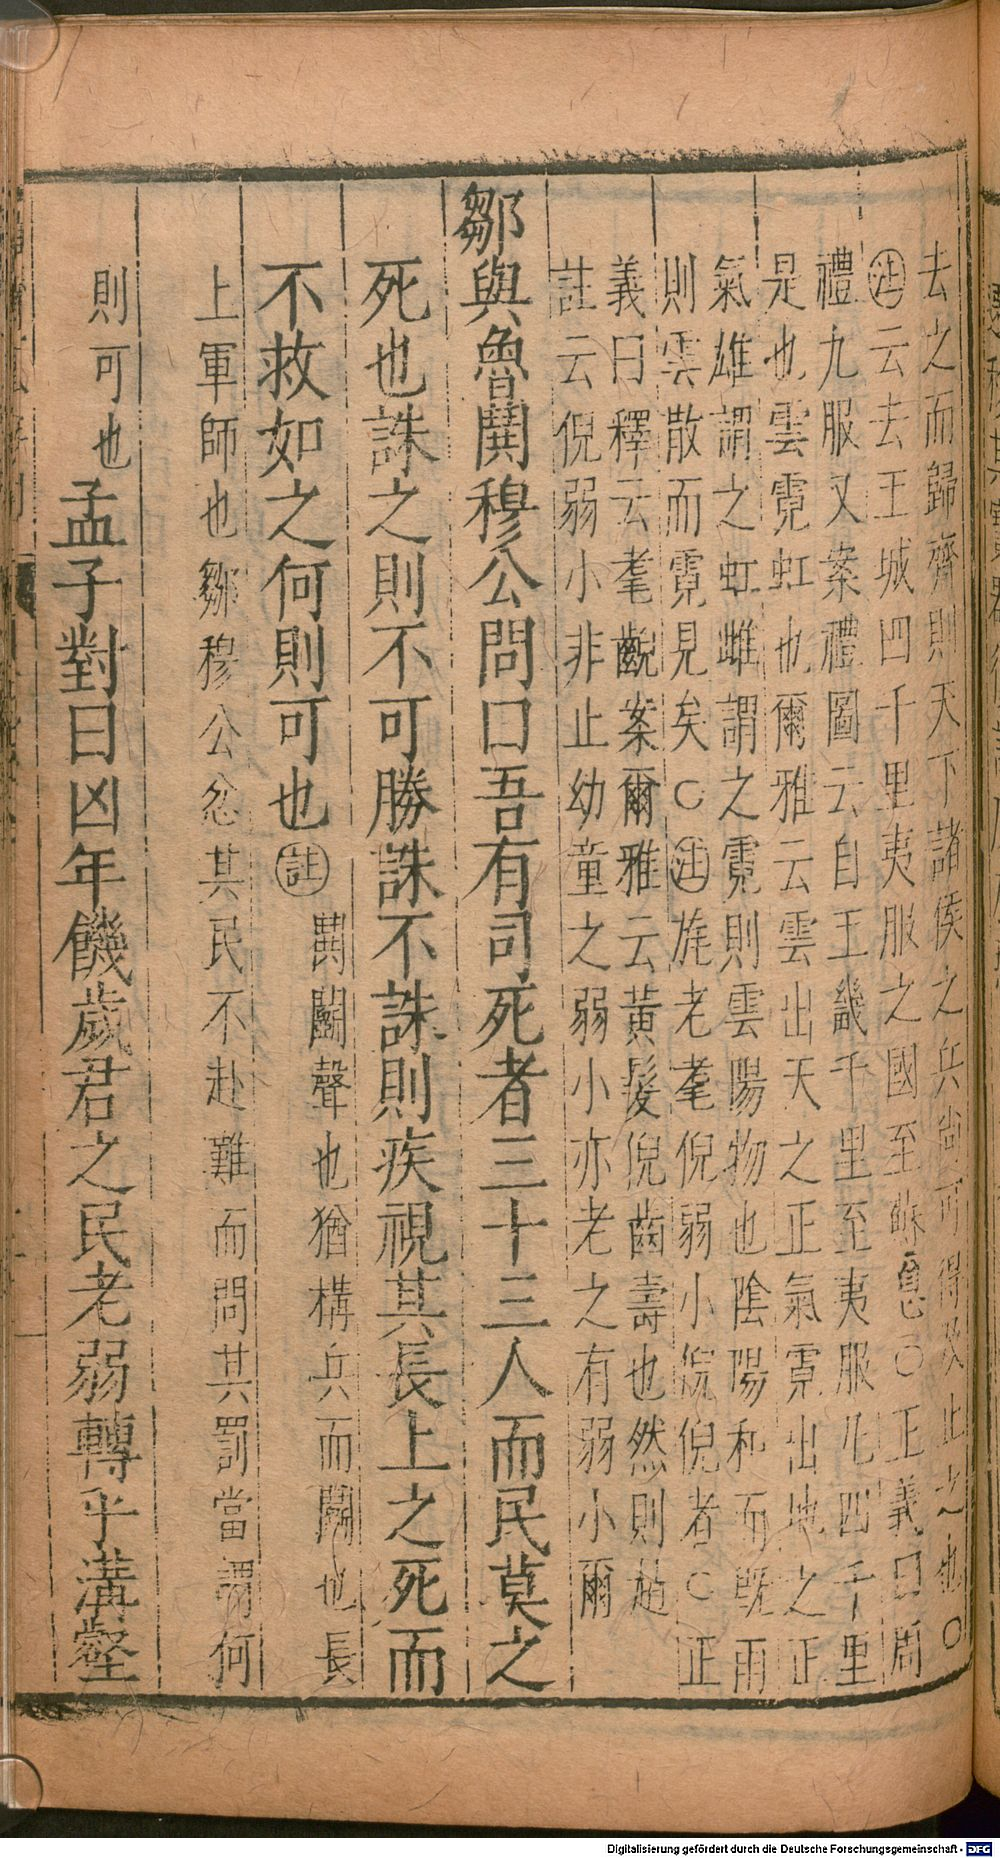 去之而歸齊則天下諸侯之兵尚可得及止之也〇
㊟云去王城四千里夷服之國至蘇息〇正義曰周
禮九服又案禮圖云自王畿千里至夷服凡四千里
是也雲霓虹也爾雅云雲出天之正氣霓出地之正
氣雄謂之虹雌謂之霓則雲陽物也陰陽和而既雨
則雲散而霓見矣〇㊟旄老耄倪弱小倪倪者〇正
義曰釋云耄齯案爾雅云黃髮倪齒壽也然則趙
註云倪弱小非止幼童之弱小亦老之有弱小爾
鄒與魯鬨穆公問曰吾有司死者三十三人而民莫之
死也誅之則不可勝誅不誅則疾視其長上之死而
不救如之何則可也㊟鬨鬭聲也猶構兵而鬭也長
上軍師也鄒穆公忿其民不赴難而問其罰當謂何
則可也孟子對曰凶年饑歲君之民老弱轉乎溝壑
Digitalisierung gefördert durch die Deutsche Forschungsgemeinschaft - DFG